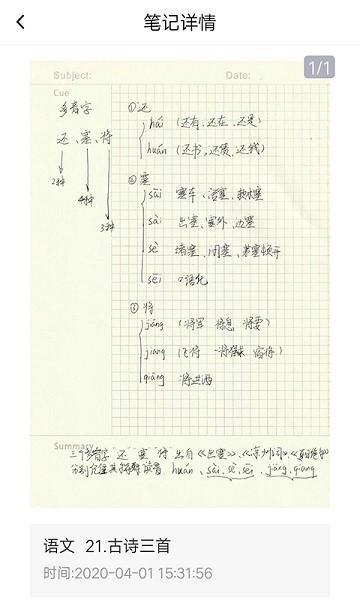 笔记详情
1/1
Subject:
Date:
Cue
多音字
还、塞、将
2种
4种
3种
①还
hái (还有、还在、还是)
huán (还书、还债、还钱)
②塞
sāi 塞车、活塞、
sài 出塞、塞外、边塞
sè 堵塞、闭塞、茅塞顿开
sēi 口语化
③将
jiāng (将军 将息 将要)
jiàng
qiāng 将进酒
Summary
三个多音字"还""塞""将"出自《出塞》、《凉州词》、
huán、sài、sè、sēi、jiāng、qiang
语文 21.古诗三首
时间:2020-04-01 15:31:56